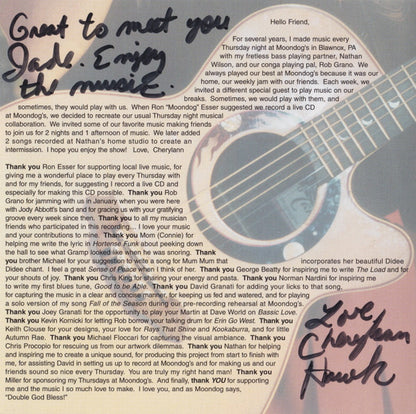 Great to meet you
Jade. Enjoy
the music.
Hello Friend,
For several years, I made music every
Thursday night at Moondog's in Blawnox, PA
with my fretless bass playing partner, Nathan
Wilson, and our conga playing pal, Rob Grano. We
always played our best at Moondog's because it was our
home, our weekly jam with our friends. Each week, we
invited a different special guest to play music on our
breaks. Sometimes, we would play with them, and
sometimes, they would play with us. When Ron "Moondog" Esser suggested we record a live CD
at Moondog's, we decided to recreate our usual Thursday night musical
collaboration. We invited some of our favorite music making friends
to join us for 2 nights and 1 afternoon of music. We later added
2 songs recorded at Nathan's home studio to create an
intermission. I hope you enjoy the show! Love, Cherylann
Thank you Ron Esser for supporting local live music, for
giving me a wonderful place to play every Thursday with
and for my friends, for suggesting I record a live CD and
especially for making this CD possible. Thank you Rob
Grano for jamming with us in January when you were here
with Jody Abbott's band and for gracing us with your gratifying
groove every week since then. Thank you to all my musical
friends who participated in this recording... I love your music
and your contributions to mine. Thank you Mom (Connie) for
helping me write the lyric in Hortense Funk about peeking down
the hall to see what Gramp looked like when he was snoring. Thank
you brother Michael for your suggestion to write a song for Mum Mum that incorporates her beautiful Didee
Didee chant. I feel a great Sense of Peace when I think of her. Thank you George Beatty for inspiring me to write The Load and for
your shouts of joy. Thank you Chris King for sharing your energy and pasta. Thank you Norman Nardini for inspiring me
to write my first blues tune, Good to be Alive. Thank you David Granati for adding your licks to that song,
for capturing the music in a clear and accurate recording, for keeping us fed and watered, and for playing
a solo version of my song Fall of the Season during our pre-recording rehearsal at Moondog's.
Thank you Joey Granati for the opportunity to play your Martin at Dave World on Bassic Love.
Thank you Kevin Kornicki for letting Rob borrow your talking drum for Erin Go West. Thank you
Keith Clouse for your designs, your love for Rays That Shine and Kookaburra, and for little
Autumn Rae. Thank you Michael Floccari for capturing the visual ambiance. Thank you
Chris Procopio for rescuing us from our artwork dilemmas. Thank you Nathan for helping
and inspiring me to create a unique sound, for producing this project from start to finish with
me, for assisting David in setting us up to record at Moondog's and for making us and our
friends sound so nice every Thursday. You are truly my right hand man! Thank you Todd
Miller for sponsoring my Thursdays at Moondog's. And finally, thank YOU for supporting
me and the music I so much love to make. I love you, and as Moondog says,
"Double God Bless!"
Love,
Cherylann
Hawk